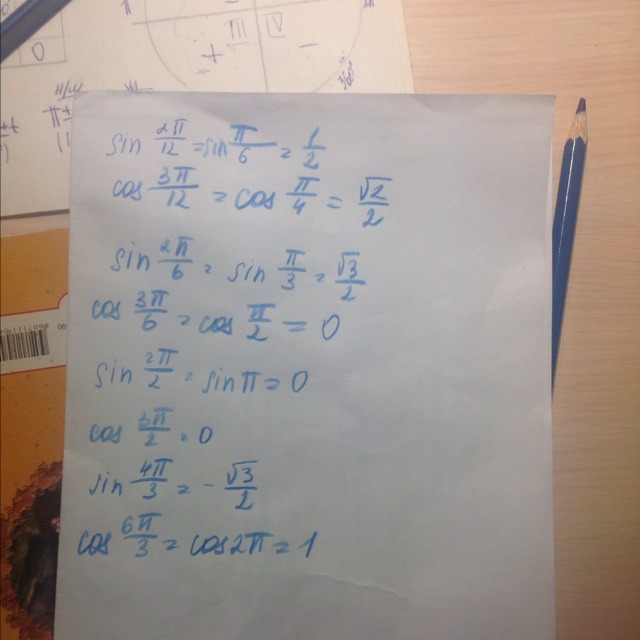 III IV
+ −
0
sin 2π/12 = sin π/6 = 1/2
cos 3π/12 = cos π/4 = √2/2
sin 2π/6 = sin π/3 = √3/2
cos 3π/6 = cos π/2 = 0
sin 2π/2 = sin π = 0
cos 3π/2 = 0
sin 4π/3 = - √3/2
cos 6π/3 = cos 2π = 1